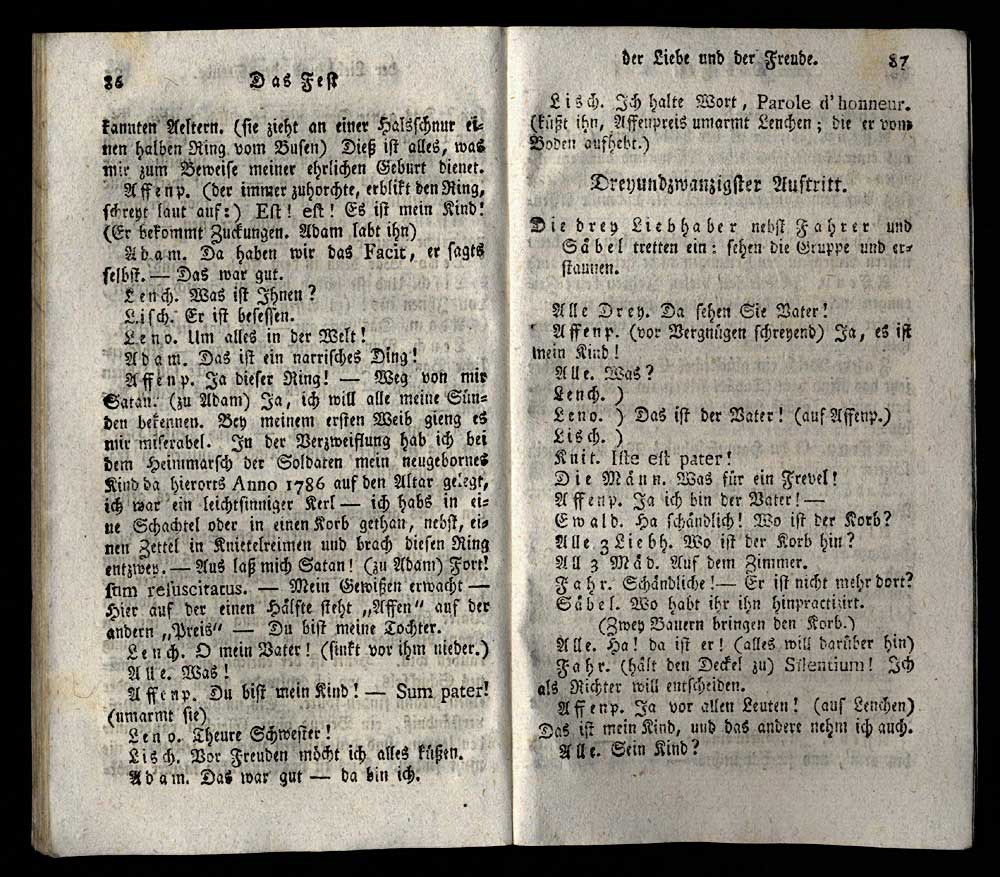 86
Das Fest
kannten Aeltern. (sie zieht an einer Halsschnur ei-
nen halben Ring vom Busen) Dieß ist alles, was
mir zum Beweise meiner ehrlichen Geburt dienet.
Affenp. (der immer zuhorchte, erblikt den Ring,
schreyt laut auf:) Est! est! Es ist mein Kind!
(Er bekommt Zuckungen. Adam labt ihn)
Adam. Da haben wir das Facit, er sagts
selbst. — Das war gut.
Lench. Was ist Ihnen?
Lisch. Er ist besessen.
Leno. Um alles in der Welt!
Adam. Das ist ein narrisches Ding!
Affenp. Ja dieser Ring! — Weg von mir
Satan. (zu Adam) Ja, ich will alle meine Sün-
den bekennen. Bey meinem ersten Weib gieng es
mir miserabel. In der Verzweiflung hab ich bei
dem Heimmarsch der Soldaten mein neugebornes
Kind da hierorts Anno 1786 auf den Altar gelegt,
ich war ein leichtsinniger Kerl — ich habs in ei-
ne Schachtel oder in einen Korb gethan, nebst, ei-
nen Zettel in Knietelreimen und brach diesen Ring
entzwey. — Aus laß mich Satan! (zu Adam) Fort!
sum resuscitatus. — Mein Gewißen erwacht —
Hier auf der einen Hälfte steht „Affen“ auf der
andern „Preis“ — Du bist meine Tochter.
Lench. O mein Vater! (sinkt vor ihm nieder.)
Alle. Was!
Affenp. Du bist mein Kind! — Sum pater!
(umarmt sie)
Leno. Theure Schwester!
Lisch. Vor Freuden möcht ich alles küßen.
Adam. Das war gut — da bin ich.
der Liebe und der Freude.
87
Lisch. Ich halte Wort, Parole d'honneur.
(küßt ihn, Affenpreis umarmt Lenchen; die er vom
Boden aufhebt.)
Dreyundzwanzigster Auftritt.
Die drey Liebhaber nebst Fahrer und
Säbel tretten ein: sehen die Gruppe und er-
staunen.
Alle Drey. Da sehen Sie Vater!
Affenp. (vor Vergnügen schreyend) Ja, es ist
mein Kind!
Alle. Was?
Lench. )
Leno. ) Das ist der Vater! (auf Affenp.)
Lisch. )
Knit. Iste est pater!
Die Männ. Was für ein Frevel!
Affenp. Ja ich bin der Vater! —
Ewald. Ha schändlich! Wo ist der Korb?
Alle 3 Liebh. Wo ist der Korb hin?
All 3 Mäd. Auf dem Zimmer.
Fahr. Schändliche! — Er ist nicht mehr dort?
Säbel. Wo habt ihr ihn hinpractizirt.
(Zwey Bauern bringen den Korb.)
Alle. Ha! da ist er! (alles will darüber hin)
Fahr. (hält den Deckel zu) Silentium! Ich
als Richter will entscheiden.
Affenp. Ja vor allen Leuten! (auf Lenchen)
Das ist mein Kind, und das andere nehm ich auch.
Alle. Sein Kind?